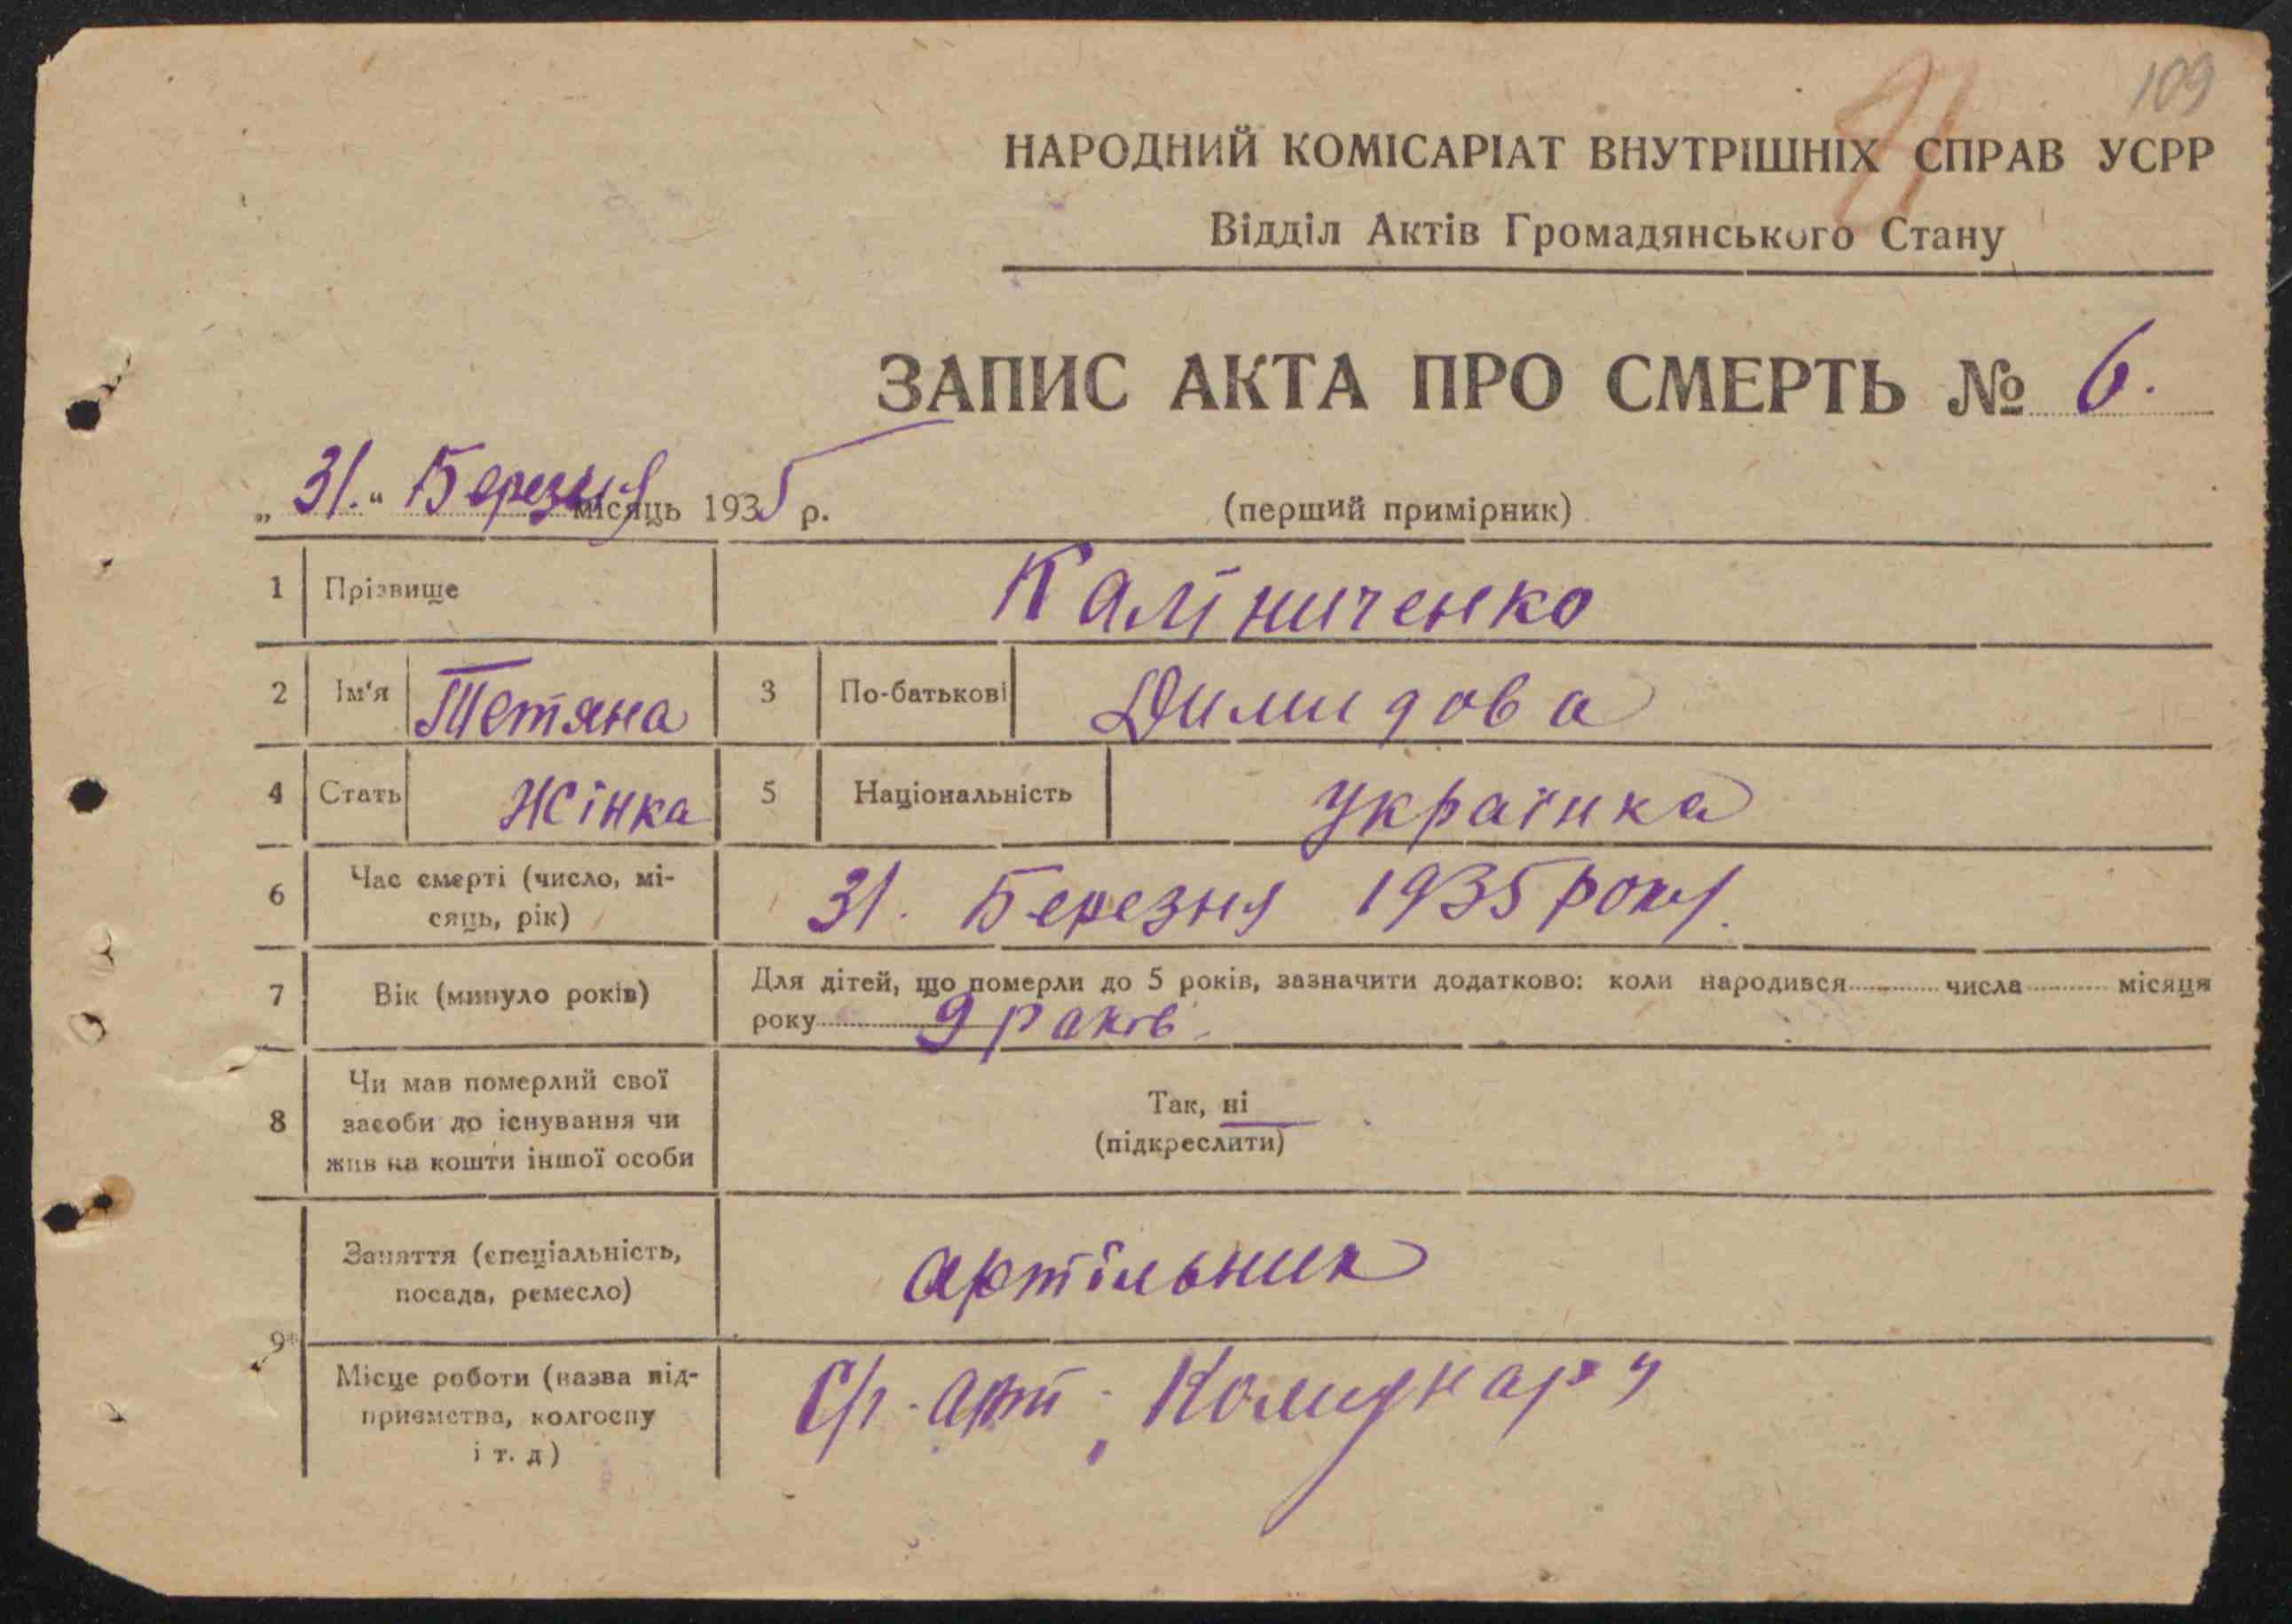 109
НАРОДНИЙ КОМІСАРІАТ ВНУТРІШНІХ СПРАВ УСРР
Відділ Актів Громадянського Стану
ЗАПИС АКТА ПРО СМЕРТЬ № 6.
„31.“ Березня місяць 1935 р. (перший примірник)
1 Прізвище Калініченко
2 Ім'я Тетяна 3 По-батькові Димидова
4 Стать Жінка 5 Національність Українка
6 Час смерті (число, мі-
сяць, рік) 31. Березня 1935 року.
7 Вік (минуло років) Для дітей, що померли до 5 років, зазначити додатково: коли народився числа місяця
року 9 раків
8 Чи мав померлий свої
засоби до існування чи
жив на кошти іншої особи
Так, ні
(підкреслити)
9* Заняття (спеціальність,
посада, ремесло) артільник
Місце роботи (назва під-
приємства, колгоспу
і т. д)
С/г. арт. Комунару